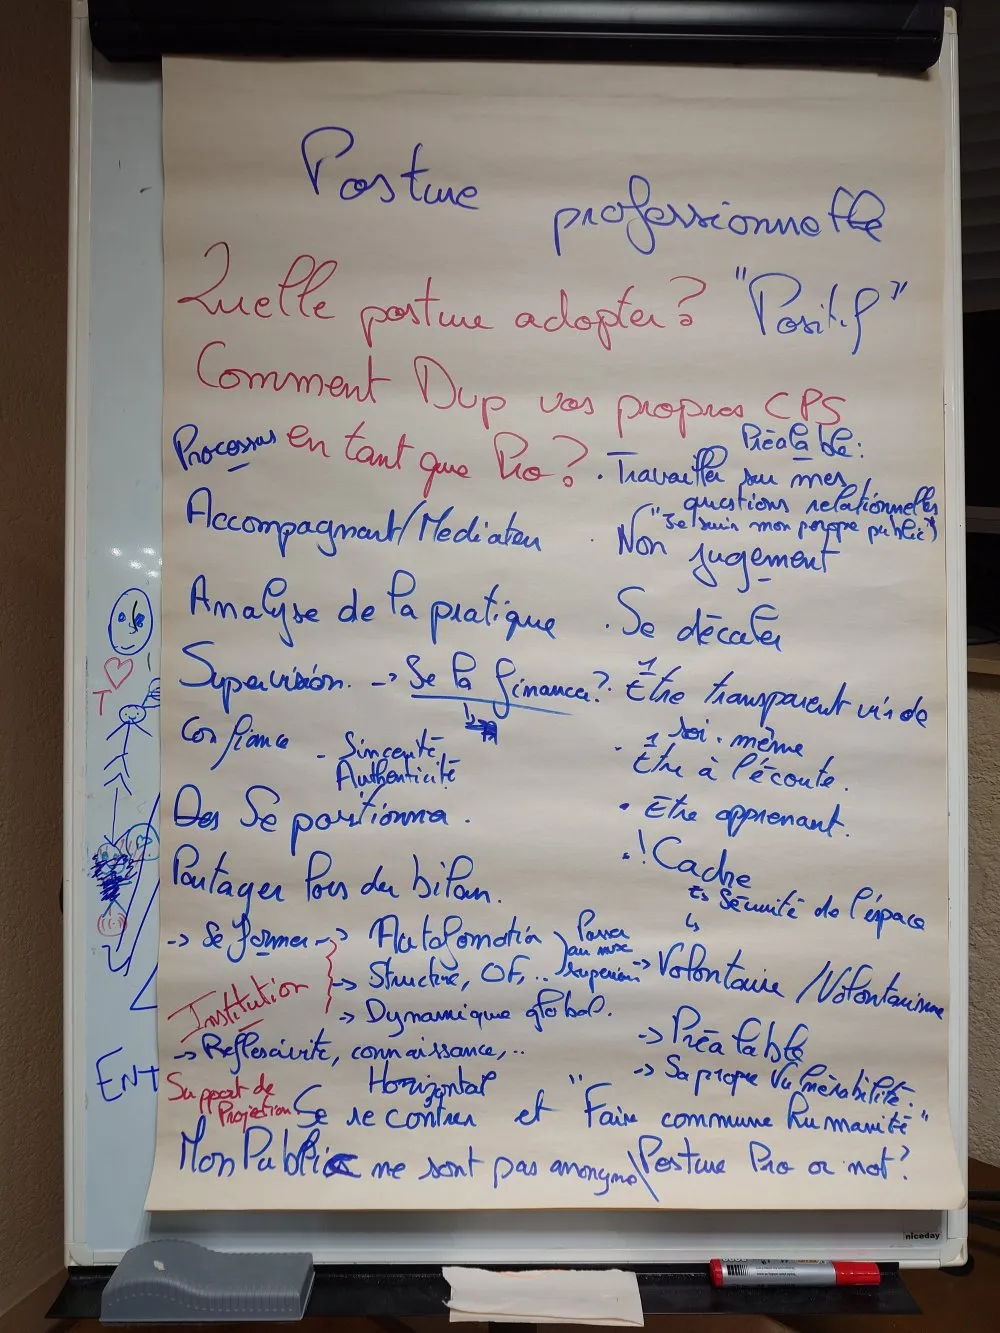 Posture professionnelle
Quelle posture adopter? "Positif"
Comment Dvp vos propres CPS
en tant que Pro?
Processus
Accompagnant/Médiateur
Analyse de la pratique
Supervision. -> Se la finance?
Confiance - Sincérité
Authenticité
Se positionner.
Partager lors du bilan.
-> Se former -> Autoformation
-> Structure, OF, ..
-> Dynamique global.
Passer au niveau supérieur
Institution
-> Réflexivité, connaissance, ..
Préalable:
. Travailler sur mes
questions relationnelles
("Je suis mon propre public")
. Non jugement
. Se décaler
. Être transparent vis de
soi-même
. Être à l'écoute.
. Être apprenant.
. ! Cadre
Sécurité de l'espace
-> Volontaire /Volontarisme
-> Préalable
-> Sa propre Vulnérabilité.
Support de
Projection
Horizontal
et "Faire commune humanité"
Mon Public ne sont pas anonyme\Posture Pro or not?
T
ENT
niceday